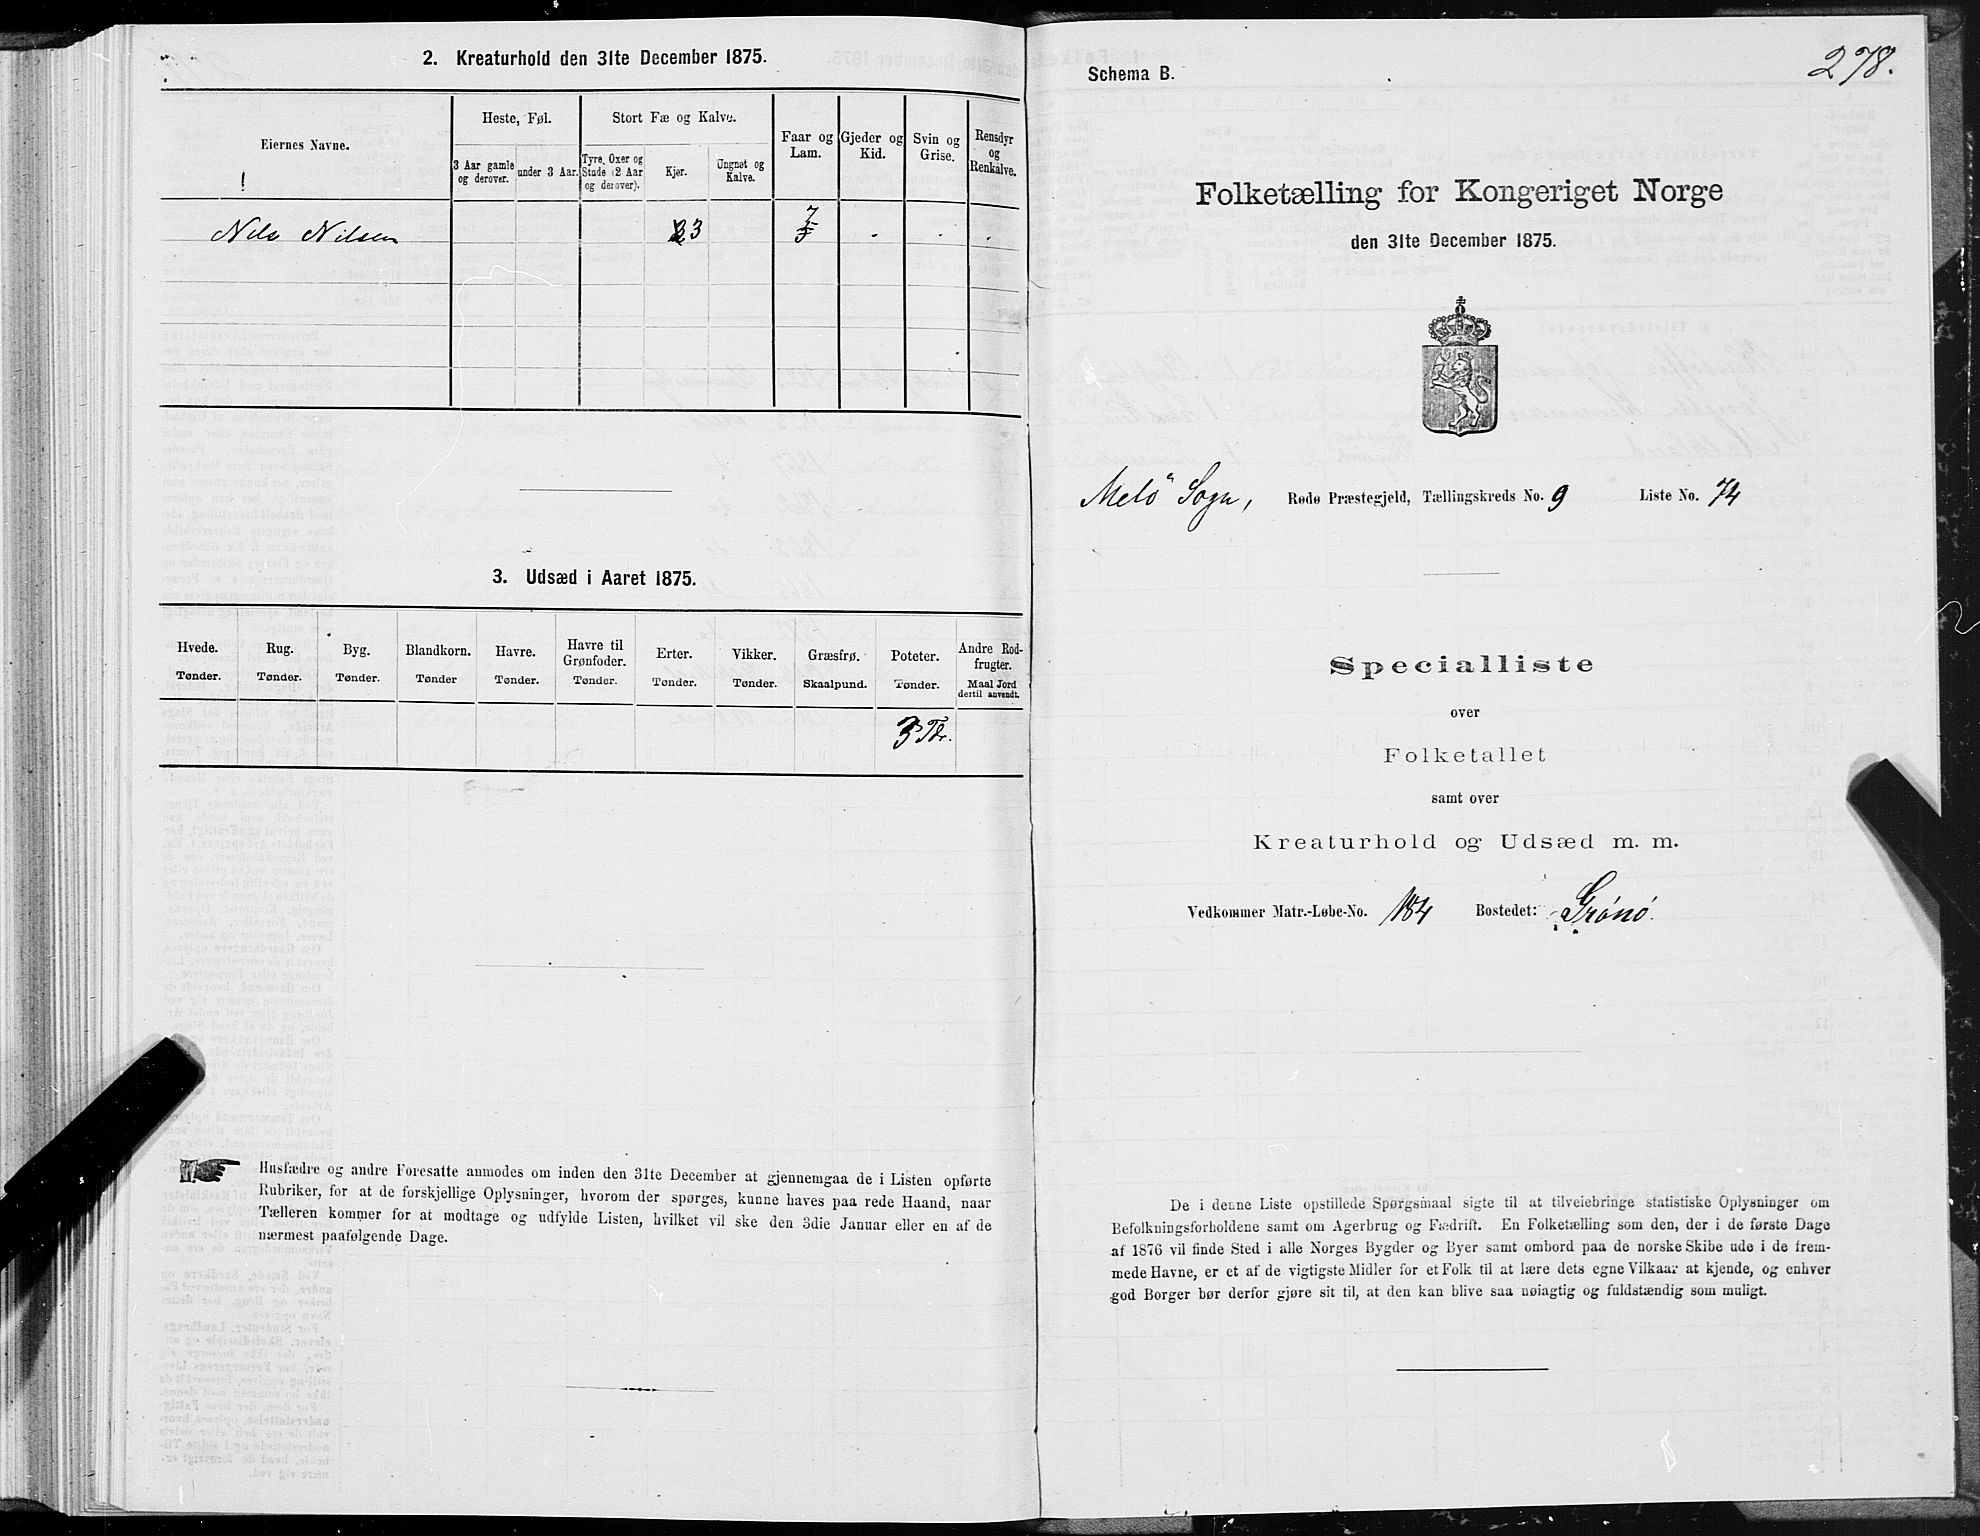 2. Kreaturhold den 31te December 1875.
Eiernes Navne.
Heste, Føl.
Stort Fæ og Kalve.
Faar og Lam.
Gjeder og Kid.
Svin og Grise.
Rensdyr og Renkalve.
3 Aar gamle og derover.
under 3 Aar.
Tyre, Oxer og Stude (2 Aar og derover).
Kjør.
Ungnøt og Kalve.
Nils Nilsen 3 7 . . .
3. Udsæd i Aaret 1875.
Hvede. Rug. Byg. Blandkorn. Havre. Havre til Grønfoder. Erter. Vikker. Græsfrø. Poteter. Andre Rodfrugter.
Tønder. Tønder. Tønder. Tønder Tønder. Tønder. Tønder. Tønder. Skaalpund. Tønder. Maal Jord dertil anvendt.
3 Tdr.
Husfædre og andre Foresatte anmodes om inden den 31te December at gjennemgaa de i Listen opførte
Rubriker, for at de forskjellige Oplysninger, hvorom der spørges, kunne haves paa rede Haand, naar
Tælleren kommer for at modtage og udfylde Listen, hvilket vil ske den 3die Januar eller en af de
nærmest paafølgende Dage.
278.
Schema B.
Folketælling for Kongeriget Norge
den 31te December 1875.
Melö Sogn, Rødø Præstegjeld, Tællingskreds No. 9 Liste No. 74
Specialliste
over
Folketallet
samt over
Kreaturhold og Udsæd m. m.
Vedkommer Matr.-Løbe-No. 184 Bostedet: Grönö.
De i denne Liste opstillede Spørgsmaal sigte til at tilveiebringe statistiske Oplysninger om
Befolkningsforholdene samt om Agerbrug og Fædrift. En Folketælling som den, der i de første Dage
af 1876 vil finde Sted i alle Norges Bygder og Byer samt ombord paa de norske Skibe ude i de frem-
mede Havne, er et af de vigtigste Midler for et Folk til at lære dets egne Vilkaar at kjende, og enhver
god Borger bør derfor gjøre sit til, at den kan blive saa nøiagtig og fuldstændig som muligt.